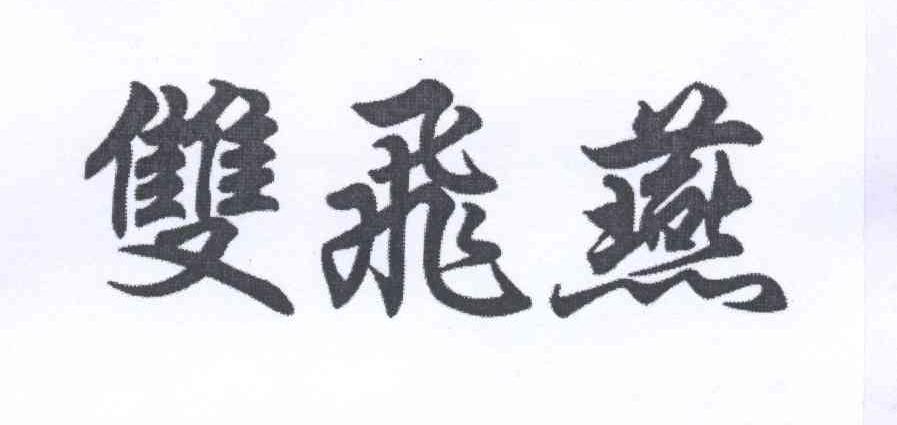 雙飛燕